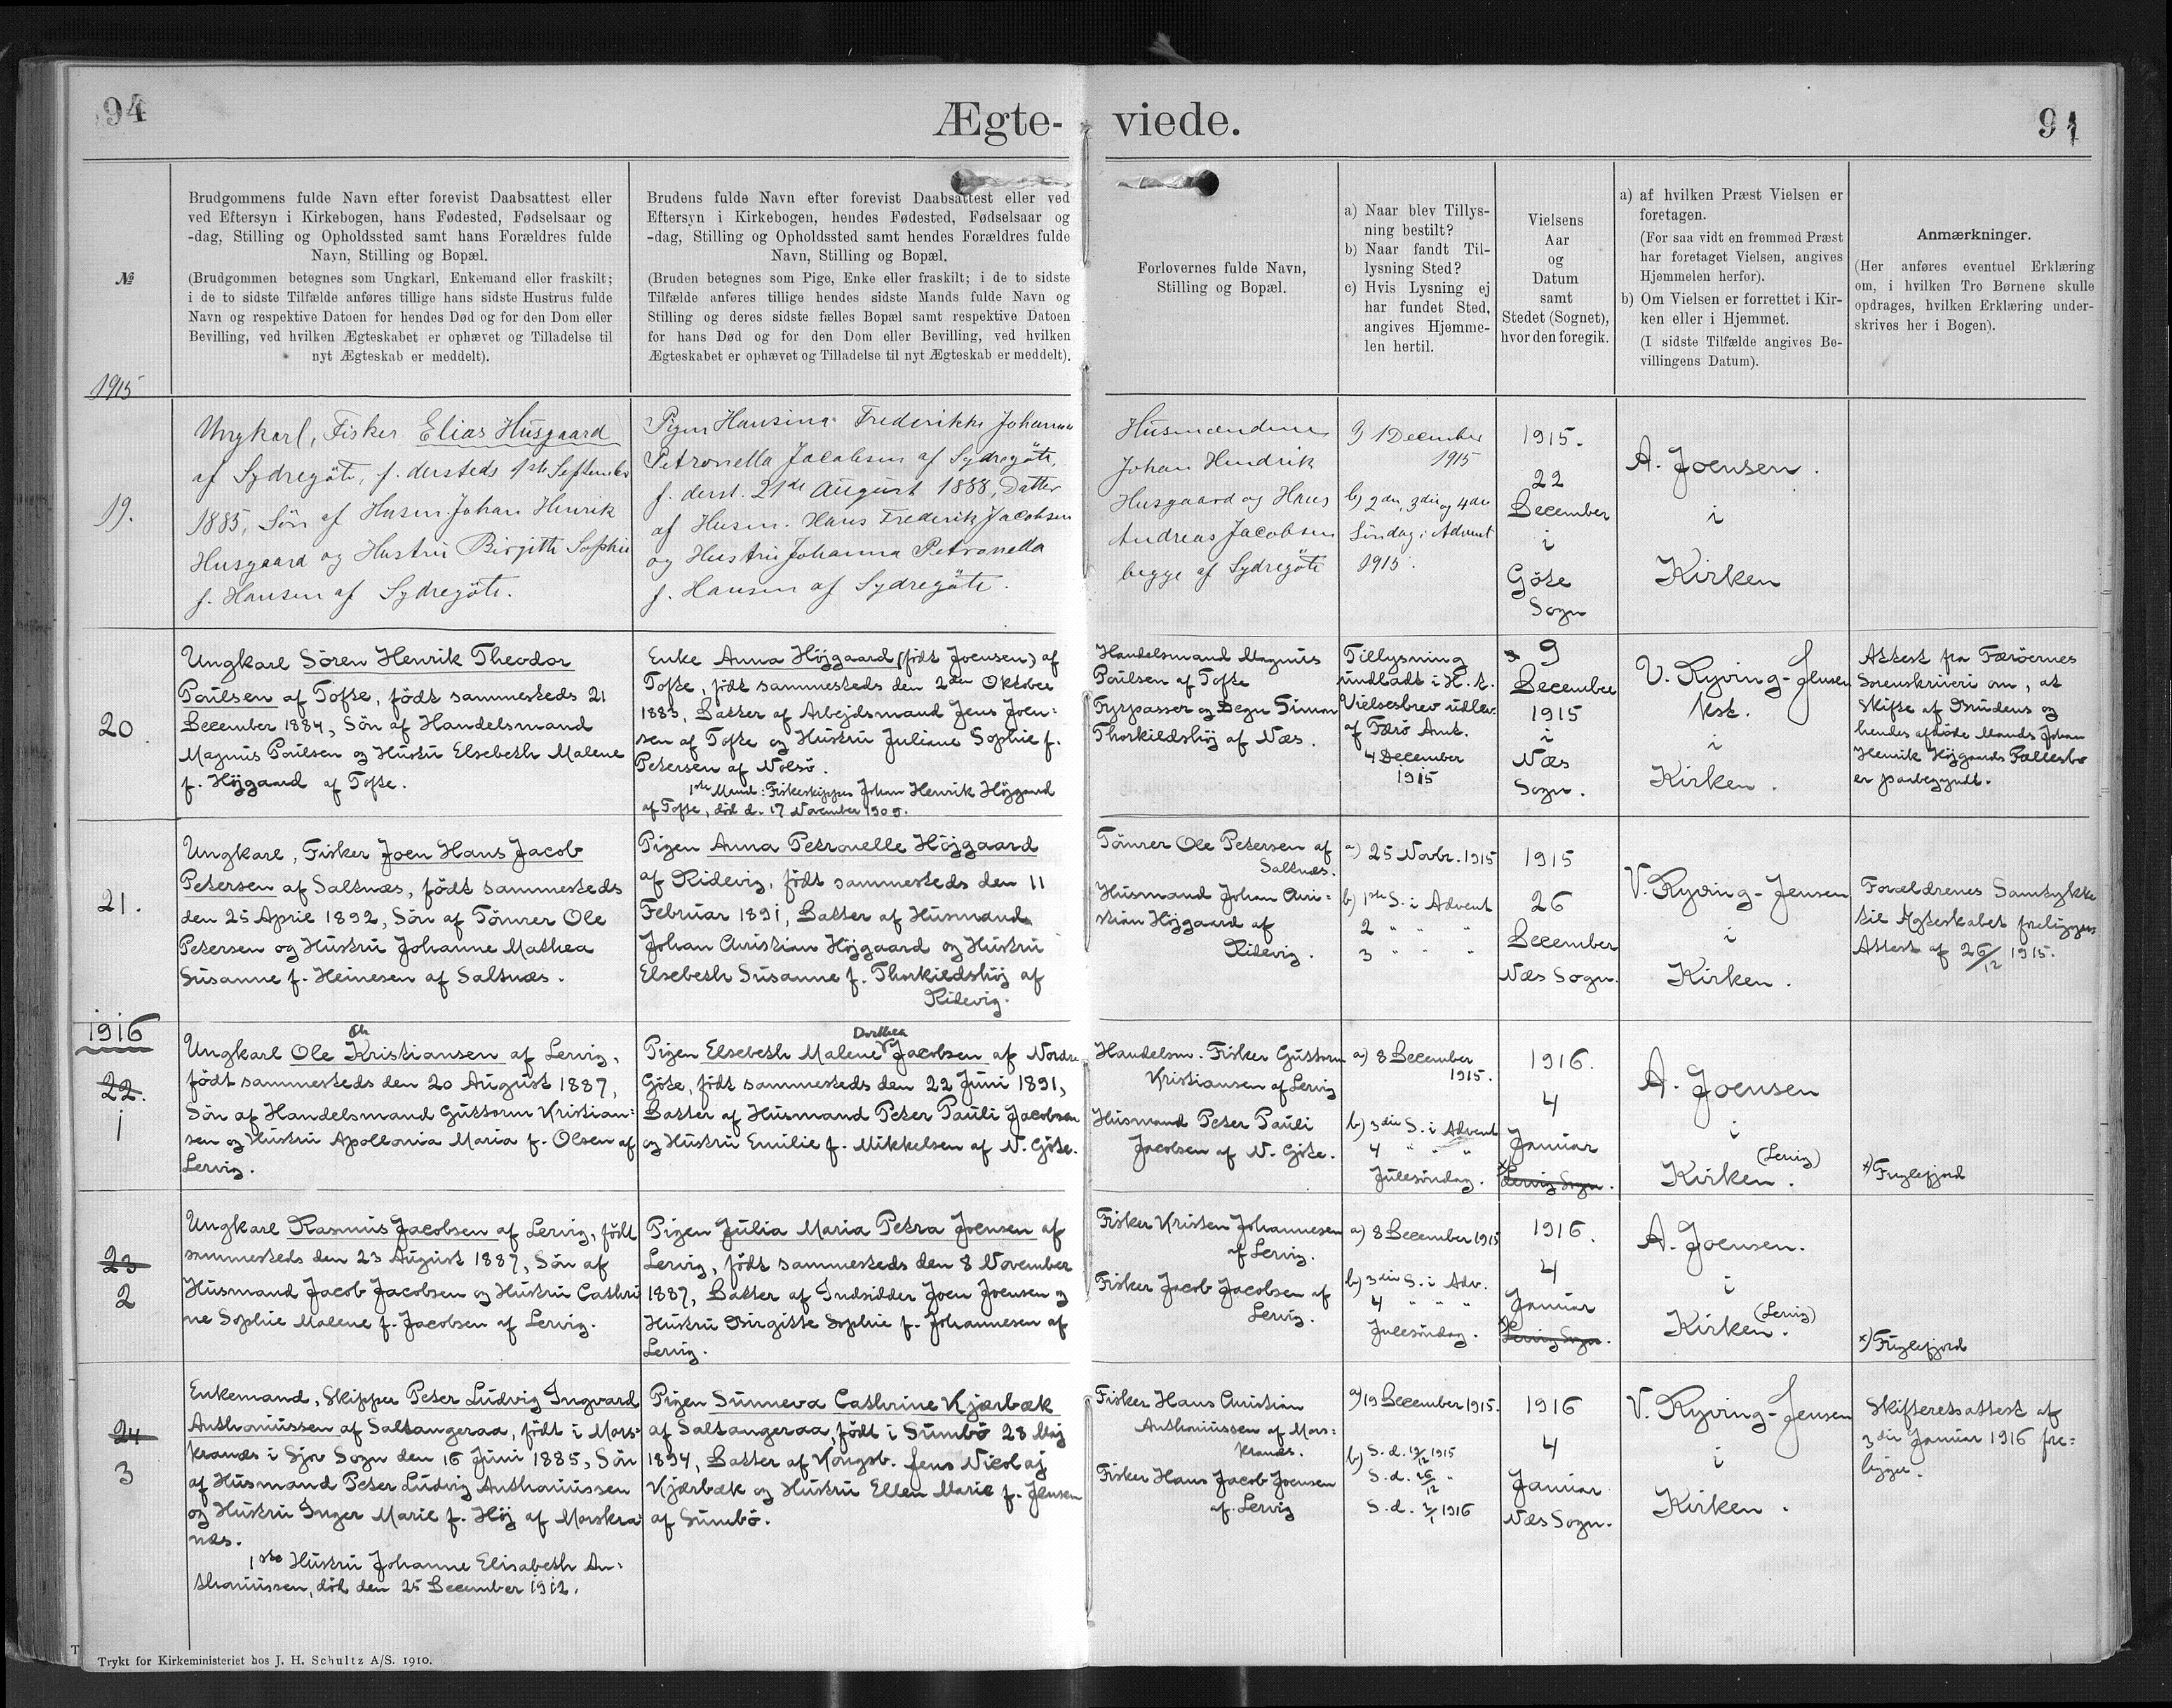 94
Ægte- viede.
91
№
Brudgommens fulde Navn efter forevist Daabsattest eller
ved Eftersyn i Kirkebogen, hans Fødested, Fødselsaar og
-dag, Stilling og Opholdssted samt hans Forældres fulde
Navn, Stilling og Bopæl.
(Brudgommen betegnes som Ungkarl, Enkemand eller fraskilt;
i de to sidste Tilfælde anføres tillige hans sidste Hustrus fulde
Navn og respektive Datoen for hendes Død og for den Dom eller
Bevilling, ved hvilken Ægteskabet er ophævet og Tilladelse til
nyt Ægteskab er meddelt).
Brudens fulde Navn efter forevist Daabsattest eller ved
Eftersyn i Kirkebogen, hendes Fødested, Fødselsaar og
-dag, Stilling og Opholdssted samt hendes Forældres fulde
Navn, Stilling og Bopæl.
(Bruden betegnes som Pige, Enke eller fraskilt; i de to sidste
Tilfælde anføres tillige hendes sidste Mands fulde Navn og
Stilling og deres sidste fælles Bopæl samt respektive Datoen
for hans Død og for den Dom eller Bevilling, ved hvilken
Ægteskabet er ophævet og Tilladelse til nyt Ægteskab er meddelt).
Forlovernes fulde Navn,
Stilling og Bopæl.
a) Naar blev Tillys-
ning bestilt?
b) Naar fandt Til-
lysning Sted?
c) Hvis Lysning ej
har fundet Sted,
angives Hjemme-
len hertil.
Vielsens
Aar
og
Datum
samt
Stedet (Sognet),
hvor den foregik.
a) af hvilken Præst Vielsen er
foretagen.
(For saa vidt en fremmed Præst
har foretaget Vielsen, angives
Hjemmelen herfor).
b) Om Vielsen er forrettet i Kir-
ken eller i Hjemmet.
(I sidste Tilfælde angives Be-
villingens Datum).
Anmærkninger.
(Her anføres eventuel Erklæring
om, i hvilken Tro Børnene skulle
opdrages, hvilken Erklæring under-
skrives her i Bogen).
1915
19.
Ungkarl, Fisker Elias Husgaard
af Sydregöte, f. dersteds 1ste September
1885, Søn af Husm. Johan Hinrik
Husgaard og Hustru Birgitte Sophie
f. Hansen af Sydregöte.
Pigen Hansina Frederikke Johanna
Petronella Jacobsen af Sydregöte,
f. derst. 21de August 1888, Datter
af Husm. Hans Frederik Jacobsen
og Hustru Johanna Petronella
f. Hansen af Sydregöte.
Husmændene
Johan Hendrik
Husgaard og Hans
Andreas Jacobsen
begge af Sydregöte
a) 1 December
1915
b) 2den, 3die og 4de
Søndag i Advent
1915.
1915.
22
December
i
Göte
Sogn
A. Joensen.
i
Kirken
20.
Ungkarl Sören Henrik Theodor
Poulsen af Tofte, födt sammesteds 21
December 1884, Sön af Handelsmand
Magnus Poulsen og Hustru Elsebeth Malene
f. Höjgaard af Tofte.
Enke Anna Höjgaard (födt Joensen) af
Tofte, födt sammesteds den 2den Oktober
1883, Datter af Arbejdsmand Jens Joen-
sen af Tofte og Hustru Juliane Sophie f.
Petersen af Nolsö.
1ste Mand: Fiskeskipper Johan Henrik Höjgaard
af Tofte, död d. 17 November 1909.
Handelsmand Magnus
Poulsen af Tofte
Fyrpasser og Degn Simon
Thorkildshöj af Næs.
Tillysning
undladt i H. t.
Vielsesbrev udlev.
af Færö Amt.
4 December
1915
9
December
1915
i
Næs
Sogn.
V. Ryving-Jensen
kst.
i
Kirken.
Attest fra Færöernes
Sorenskriveri om, at
Skifte af Brudens og
hendes afdöde Mands Johan
Henrik Höjgaards Fællesbo
er paabegyndt.
21.
Ungkarl, Fisker Joen Hans Jacob
Petersen af Saltnæs, födt sammesteds
den 25 April 1892, Sön af Tömrer Ole
Petersen og Hustru Johanne Mathea
Susanne f. Heinesen af Saltnæs.
Pigen Anna Petronelle Höjgaard
af Ridevig, födt sammesteds den 11
Februar 1891, Datter af Husmand
Johan Christian Höjgaard og Hustru
Elsebeth Susanne f. Thorkildshöj af
Ridevig.
Tömrer Ole Petersen af
Saltnæs.
Husmand Johan Chri-
stian Höjgaard af
Ridevig.
a) 25 Novbr. 1915
b) 1ste S. i Advent
2 " " "
3 " " "
1915
26
December
Næs Sogn.
V. Ryving-Jensen
i
Kirken.
Forældrenes Samtykke
til Ægteskabet foreligger
Attest af 26/12 1915.
1916
22.
1
Ungkarl Ole Kristiansen af Lervig,
Ch
födt sammesteds den 20 August 1887,
Sön af Handelsmand Guttorm Kristian-
sen og Hustru Apollonia Maria f. Olsen af
Lervig.
Dorthea
Pigen Elsebeth Malene Jacobsen af Nordre
Göte, födt sammesteds den 22 Juni 1891,
Datter af Husmand Peter Pauli Jacobsen
og Hustru Emilie f. Mikkelsen af N. Göte.
Handelsm. Fisker Guttorm
Kristiansen af Lervig
Husmand Peter Pauli
Jacobsen af N. Göte.
a) 8 December
1915.
b) 3die S. i Advent
4 " " "
Julesöndag.
1916.
4
Januar
x) Lervig Sogn.
A. Joensen
i
Kirken. (Lervig)
x) Fuglefjord
23
2
Ungkarl Rasmus Jacobsen af Lervig, födt
sammesteds den 23 August 1887, Sön af
Husmand Jacob Jacobsen og Hustru Cathri
ne Sophie Malene f. Jacobsen af Lervig.
Pigen Julia Maria Petra Joensen af
Lervig, födt sammesteds den 8 November
1887, Datter af Indsidder Joen Joensen og
Hustru Birgitte Sophie f. Johannesen af
Lervig.
Fisker Kristen Johannesen
af Lervig.
Fisker Jacob Jacobsen af
Lervig.
a) 8 December 1915
b) 3die S. i Adv.
4 " " "
Julesöndag.
1916.
4
Januar
x) Lervig Sogn.
A. Joensen.
i
Kirken. (Lervig)
x) Fuglefjord
24
3
Enkemand, Skipper Peter Ludvig Ingvard
Anthoniussen af Saltangeraa, födt i Mors-
kranæs i Sjov Sogn den 16 Juni 1885, Sön
af Husmand Peter Ludvig Anthoniussen
og Hustru Inger Marie f. Höj af Morskra
næs.
1ste Hustru Johanne Elisabeth An-
thoniussen, död den 25 December 1912.
Pigen Sunneva Cathrine Kjærbæk
af Saltangeraa, födt i Sumbö 28 Maj
1894, Datter af Kongsb. Jens Nicolaj
Kjærbæk og Hustru Ellen Marie f. Jensen
af Sumbö.
Fisker Hans Christian
Anthoniussen af Mors-
kranæs.
Fisker Hans Jacob Joensen
af Lervig
a) 19 December 1915.
b) S. d. 19/12 1915
S. d. 26/12 "
S. d. 2/1 1916
1916
4
Januar
Næs Sogn.
V. Ryving-Jensen
i
Kirken.
Skifteretsattest af
3die Januar 1916 fore-
ligger.
Trykt for Kirkeministeriet hos J. H. Schultz A/S. 1910.